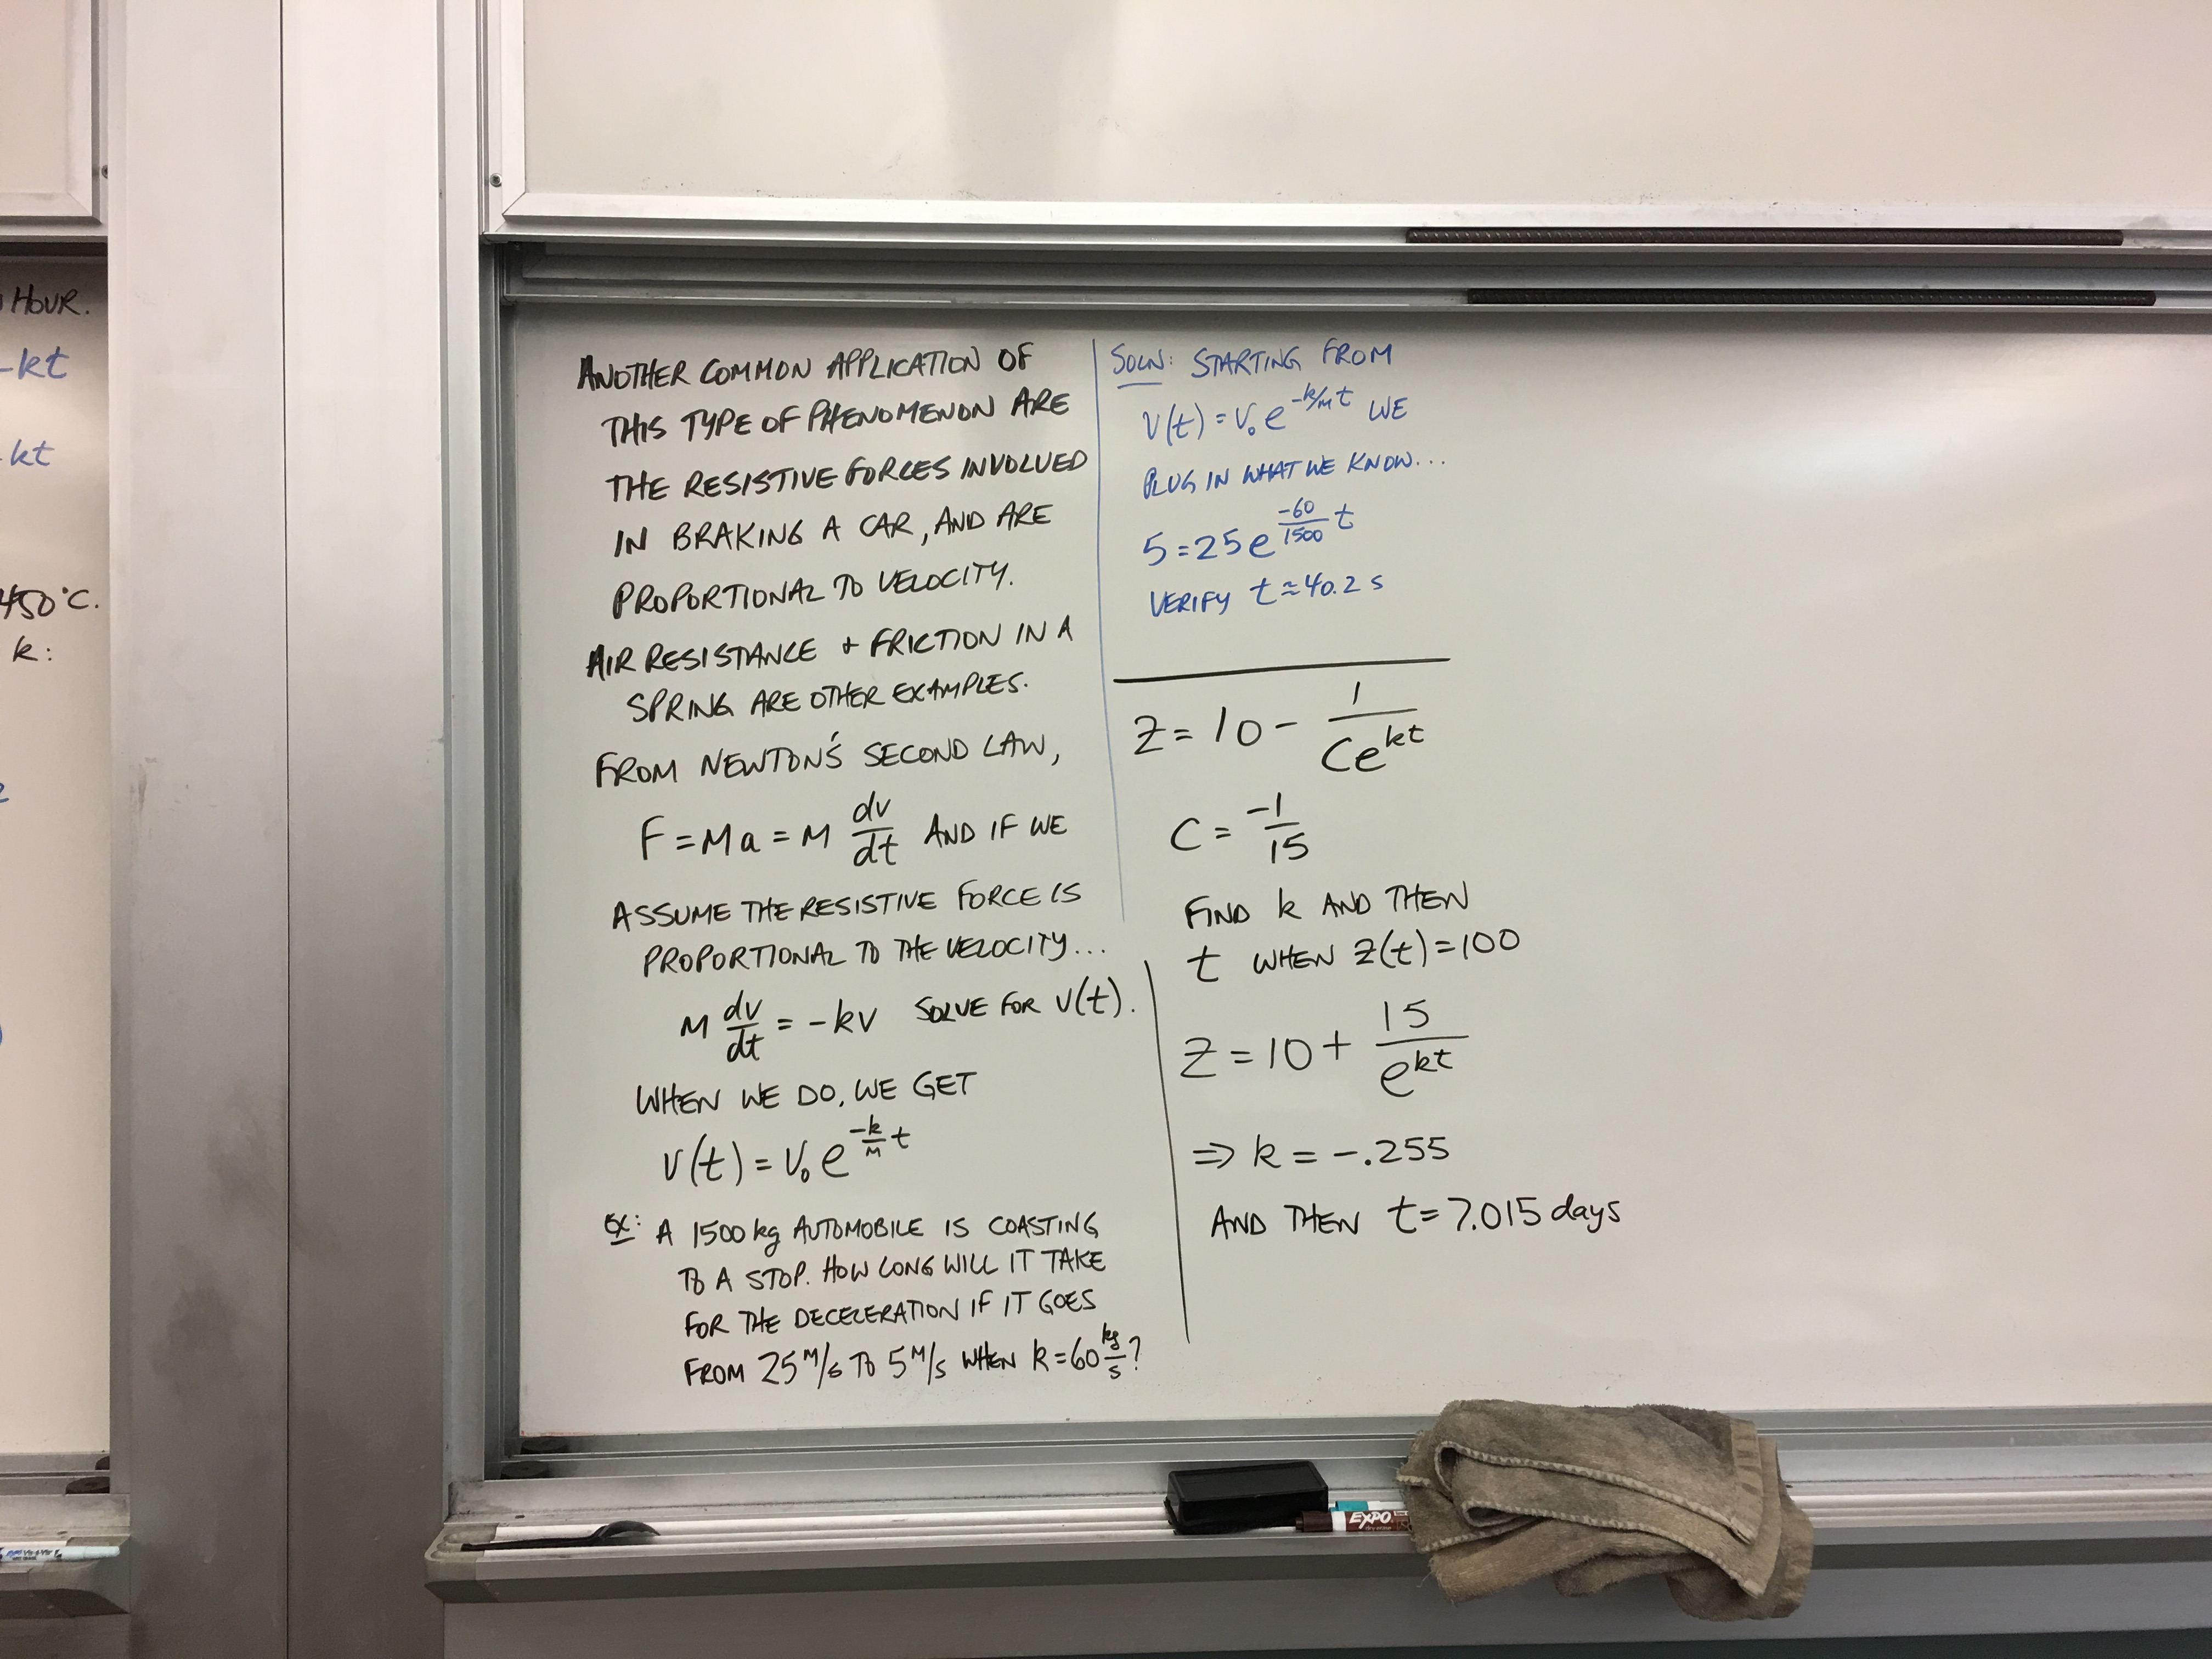 HOUR.
-kt
-kt
450°C.
k:
ANOTHER COMMON APPLICATION OF
THIS TYPE OF PHENOMENON ARE
THE RESISTIVE FORCES INVOLVED
IN BRAKING A CAR, AND ARE
PROPORTIONAL TO VELOCITY.
AIR RESISTANCE + FRICTION IN A
SPRING ARE OTHER EXAMPLES.
FROM NEWTON'S SECOND LAW,
F = Ma = M dv/dt AND IF WE
ASSUME THE RESISTIVE FORCE IS
PROPORTIONAL TO THE VELOCITY...
M dv/dt = -kv SOLVE FOR v(t).
WHEN WE DO, WE GET
v(t) = v₀ e^(-k/M t)
EX: A 1500 kg AUTOMOBILE IS COASTING
TO A STOP. HOW LONG WILL IT TAKE
FOR THE DECELERATION IF IT GOES
FROM 25 M/s TO 5 M/s WHEN k = 60 kg/s?
SOLN: STARTING FROM
v(t) = v₀ e^(-k/M t) WE
PLUG IN WHAT WE KNOW...
5 = 25 e^(-60/1500 t)
VERIFY t ≈ 40.2 s
Z = 10 - 1/(Ce^(kt))
C = -1/15
FIND k AND THEN
t WHEN Z(t) = 100
Z = 10 + 15/(e^(kt))
⇒ k = -.255
AND THEN t = 7.015 days
EXPO